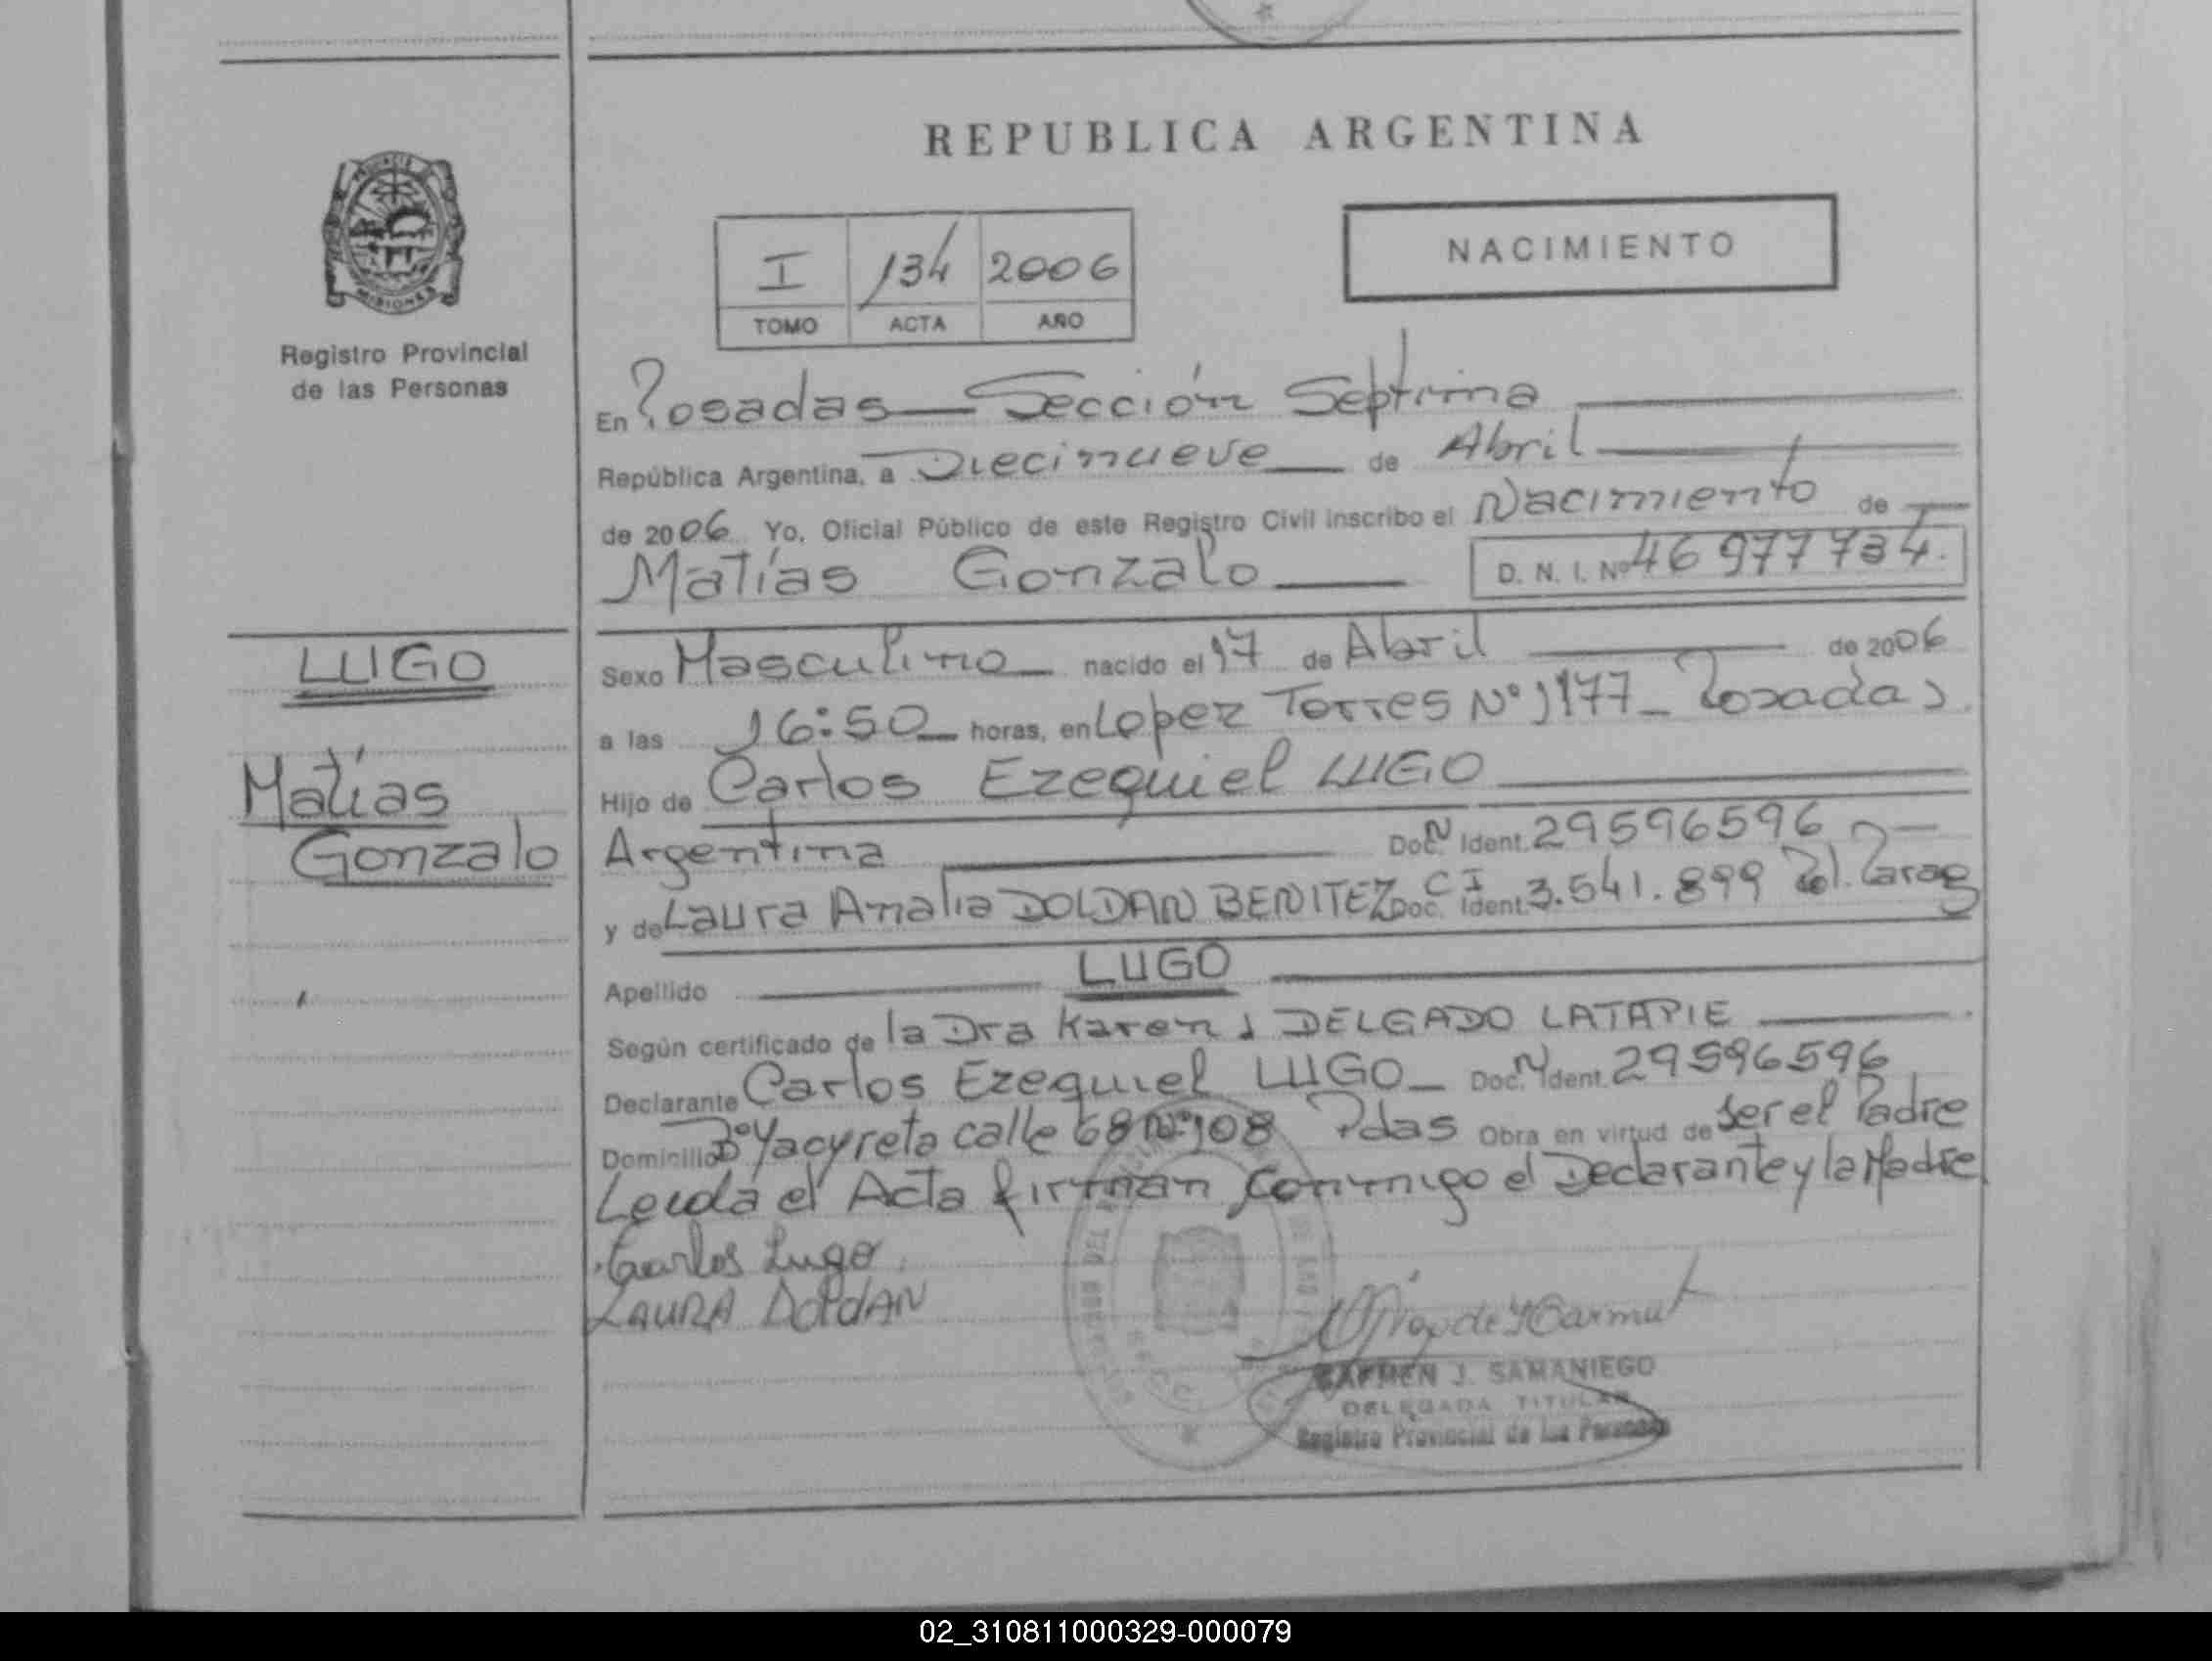 REPUBLICA ARGENTINA
PROVINCIA
MISIONES
Registro Provincial
de las Personas
I 134 2006
TOMO ACTA AÑO
NACIMIENTO
En Posadas — Sección Septima
República Argentina, a Diecinueve de Abril
de 2006 Yo, Oficial Público de este Registro Civil inscribo el Nacimiento de
Matías Gonzalo D. N. I. Nº 46 977 734.
LUGO
Matías
Gonzalo
Sexo Masculino nacido el 17 de Abril de 2006
a las 16:50 horas, en Lopez Torres Nº 1177 - Posadas
Hijo de Carlos Ezequiel LUGO
Argentina Doc. N Ident. 29596596
y de Laura Amalia DOLDAN BENITEZ Doc. C I Ident. 3.541.899 Pol. Parag
Apellido LUGO
Según certificado de la Dra Karen J DELGADO LATAPIE
Declarante Carlos Ezequiel LUGO Doc. N Ident. 29596596
Domicilio Bº Yacyreta calle 68 Nº 108 Pdas Obra en virtud de ser el Padre
Leida el Acta firman conmigo el Declarante y la Madre
Carlos Lugo
LAURA DOLDAN
CARMEN J. SAMANIEGO
DELEGADA TITULAR
Registro Provincial de las Personas
02_310811000329-000079